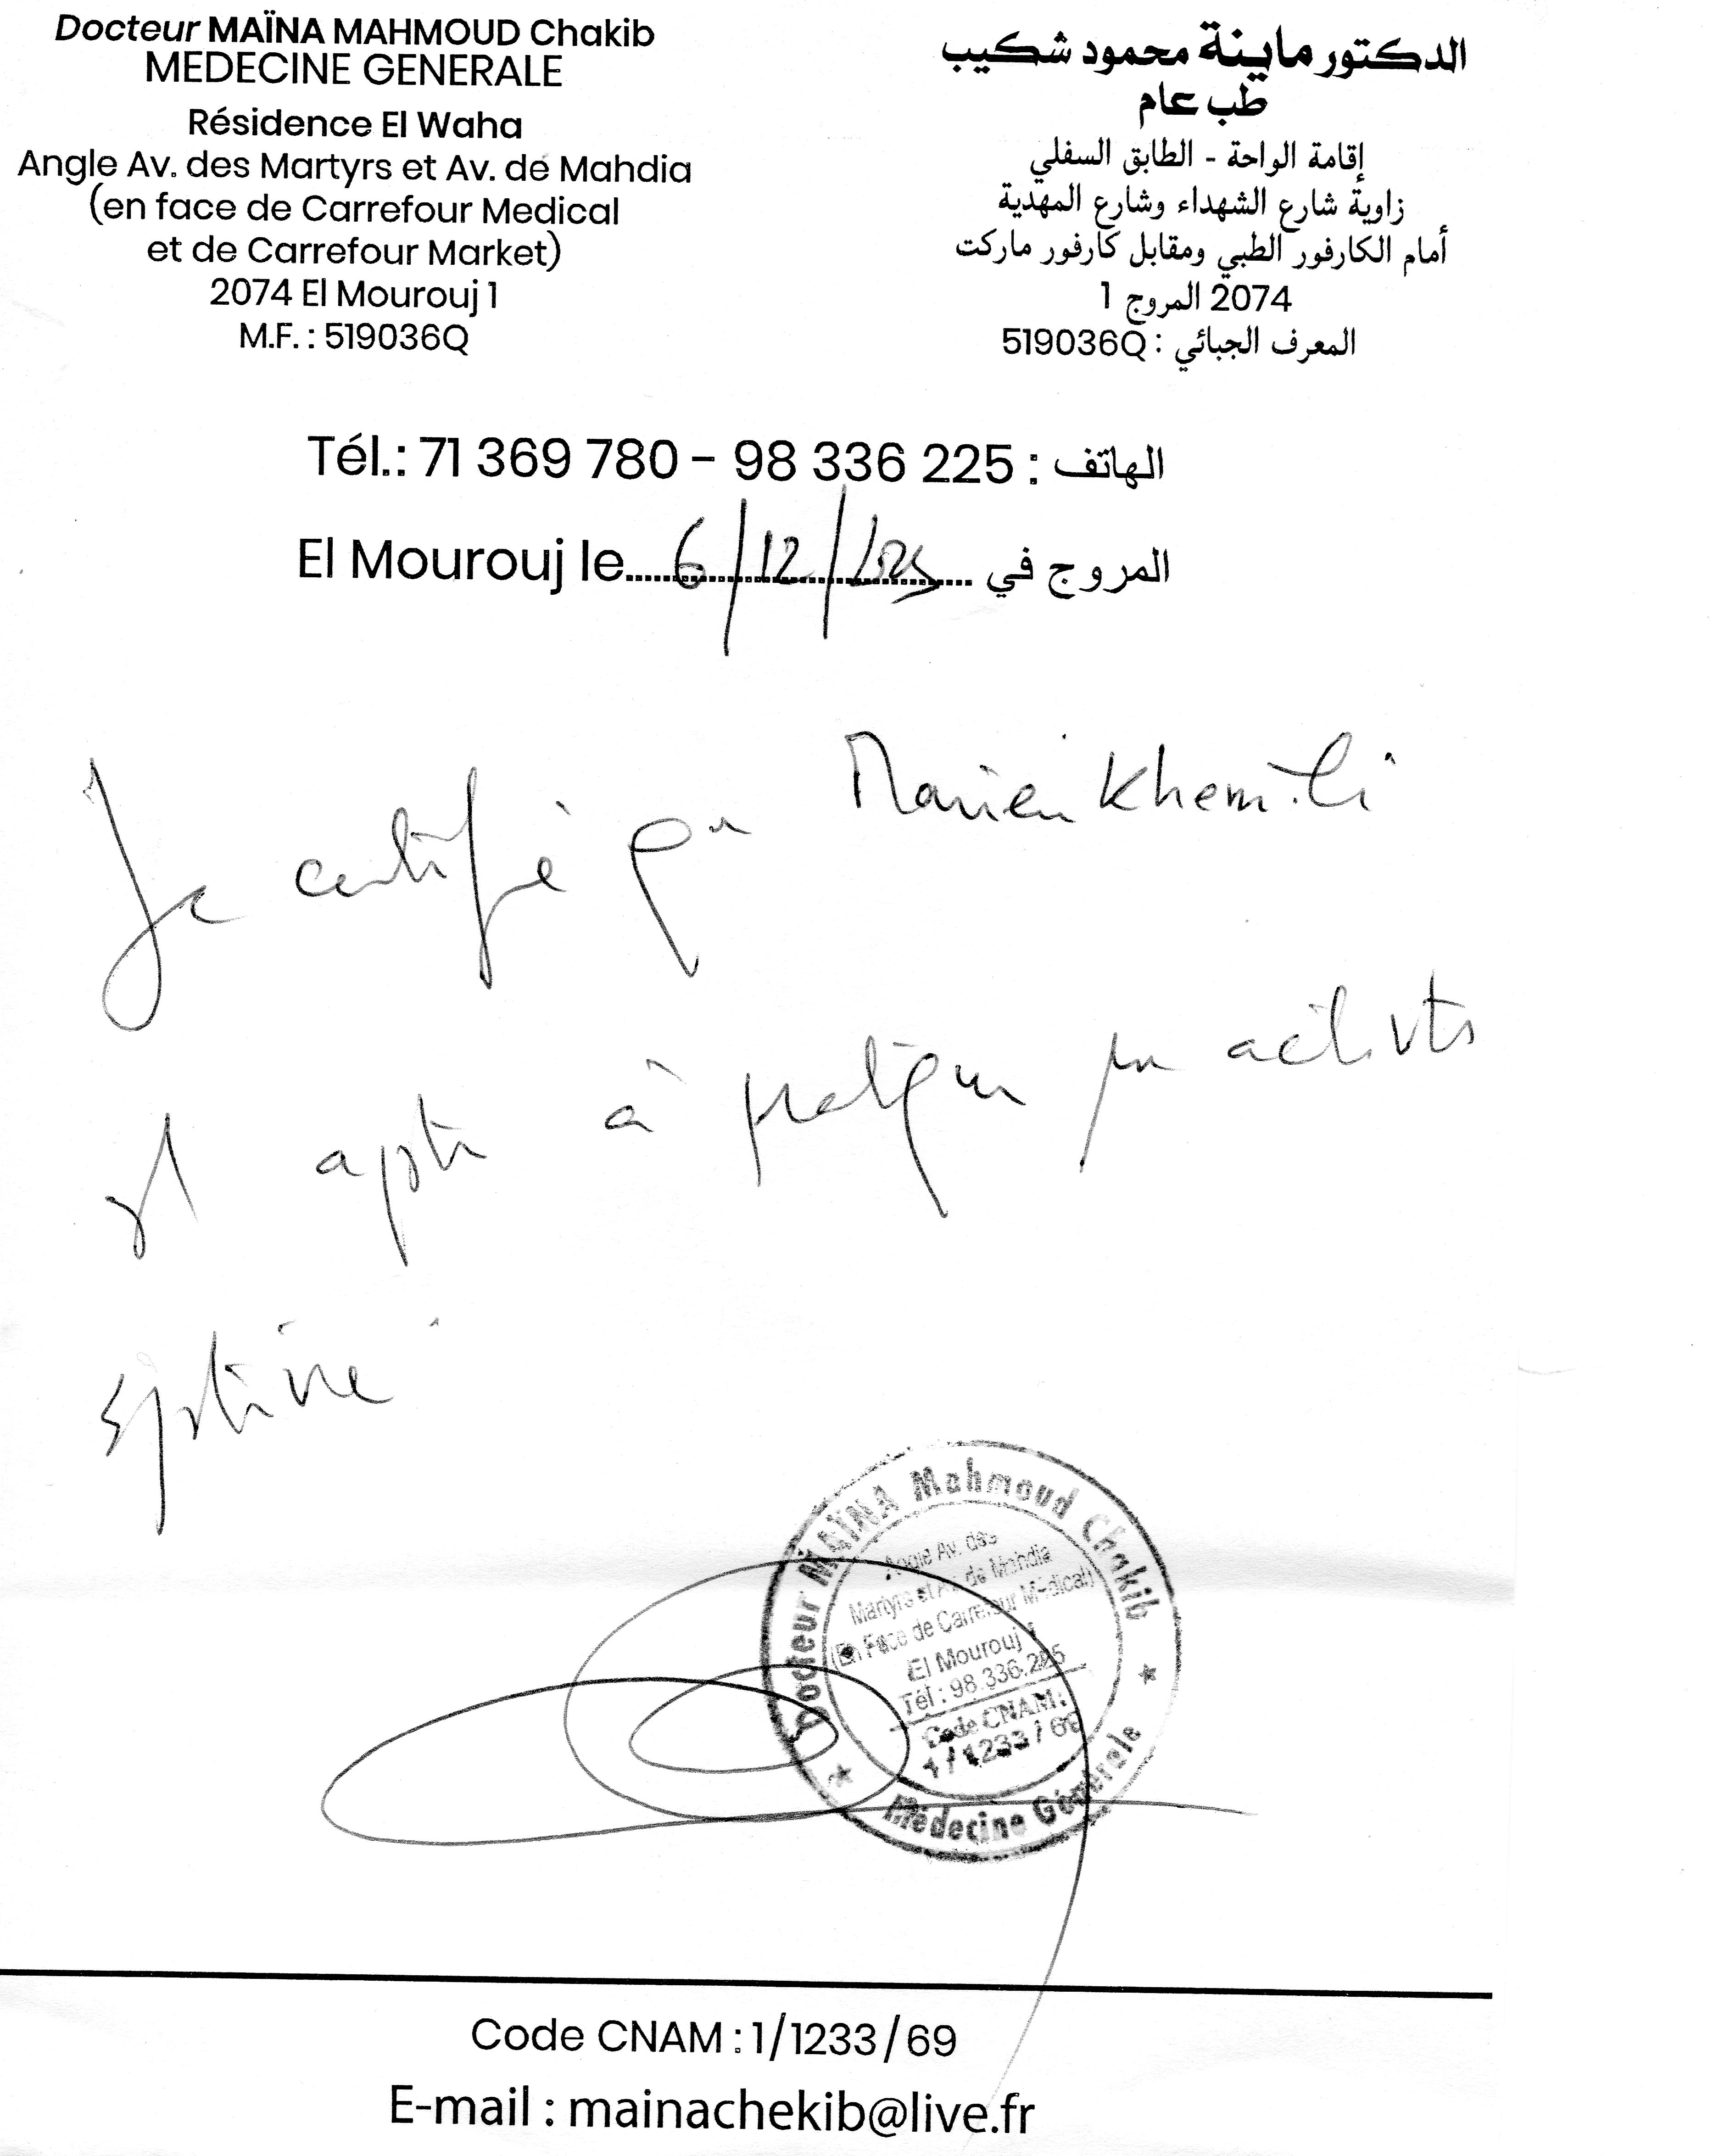 Docteur MAÏNA MAHMOUD Chakib
MEDECINE GENERALE
Résidence El Waha
Angle Av. des Martyrs et Av. de Mahdia
(en face de Carrefour Medical
et de Carrefour Market)
2074 El Mourouj 1
M.F. : 519036Q
الدكتور ماينة محمود شكيب
طب عام
إقامة الواحة - الطابق السفلي
زاوية شارع الشهداء وشارع المهدية
أمام الكارفور الطبي ومقابل كارفور ماركت
2074 المروج 1
المعرف الجبائي : 519036Q
Tél.: 71 369 780 - 98 336 225 : الهاتف
El Mourouj le 6/12/2025 المروج في
Je certifie que Khemili
est apte à pratiquer activité
sportive
Docteur MAÏNA Mahmoud Chakib
Angle Av. des
Martyrs et Av. de Mahdia
(En Face de Carrefour Médical)
El Mourouj 1
Tél : 98.336.225
Code CNAM:
1/1233/69
Médecine Générale
Code CNAM : 1/1233/69
E-mail : mainachekib@live.fr